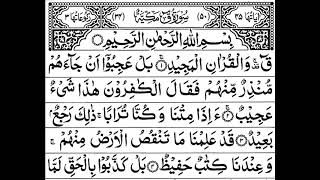 اٰيَاتُهَا ٤٥ (٥٠) سُوْرَةُ قٓ مَكِّيَّةٌ (٣٤) رُكُوْعَاتُهَا ٣
بِسْمِ اللّٰهِ الرَّحْمٰنِ الرَّحِيْمِ
قٓ ۚ وَالْقُرْاٰنِ الْمَجِيْدِ ۝١ بَلْ عَجِبُوْۤا اَنْ جَآءَهُمْ
مُّنْذِرٌ مِّنْهُمْ فَقَالَ الْكٰفِرُوْنَ هٰذَا شَيْءٌ
عَجِيْبٌ ۝٢ ءَاِذَا مِتْنَا وَكُنَّا تُرَابًا ۚ ذٰلِكَ رَجْعٌۢ
بَعِيْدٌ ۝٣ قَدْ عَلِمْنَا مَا تَنْقُصُ الْاَرْضُ مِنْهُمْ ۚ
وَعِنْدَنَا كِتٰبٌ حَفِيْظٌ ۝٤ بَلْ كَذَّبُوْا بِالْحَقِّ لَمَّا